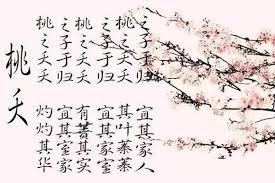 桃夭
桃之夭夭
灼灼其华
之子于归
宜其室家
桃之夭夭
有蕡其实
之子于归
宜其家室
桃之夭夭
其叶蓁蓁
之子于归
宜其家人